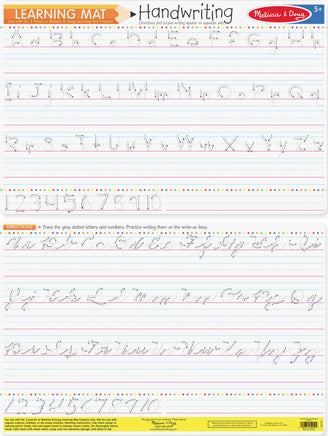 LEARNING MAT
Handwriting
Melissa & Doug
5+
Directions and cursive writing appear on opposite side
A a B b C c D d E e F f G g H h
I i J j K k L l M m N n O o P p Q q
R r S s T t U u V v W w X x Y y Z z
1 2 3 4 5 6 7 8 9 10
DIRECTIONS Trace the gray dotted letters and numbers. Practice writing them on the write-on lines.
A a B b C c D d E e F f G g H h
I i J j K k L l M m N n O o P p Q q
R r S s T t U u V v W w X x Y y Z z
1 2 3 4 5 6 7 8 9 10
Melissa & Doug